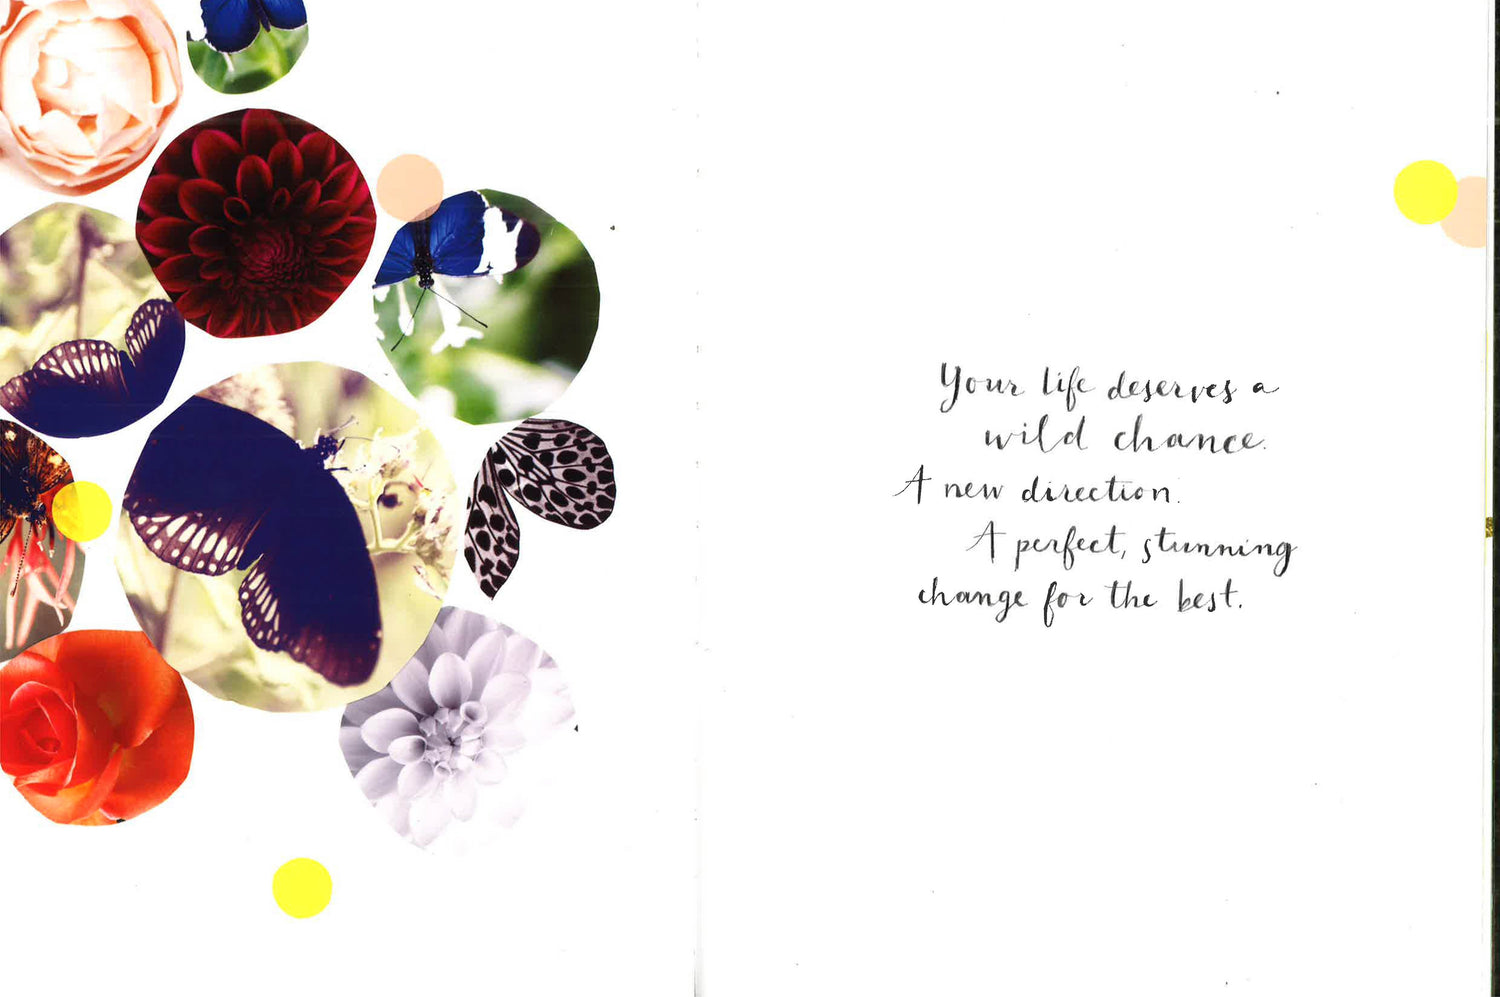 Your life deserves a
wild chance.
A new direction.
A perfect, stunning
change for the best.